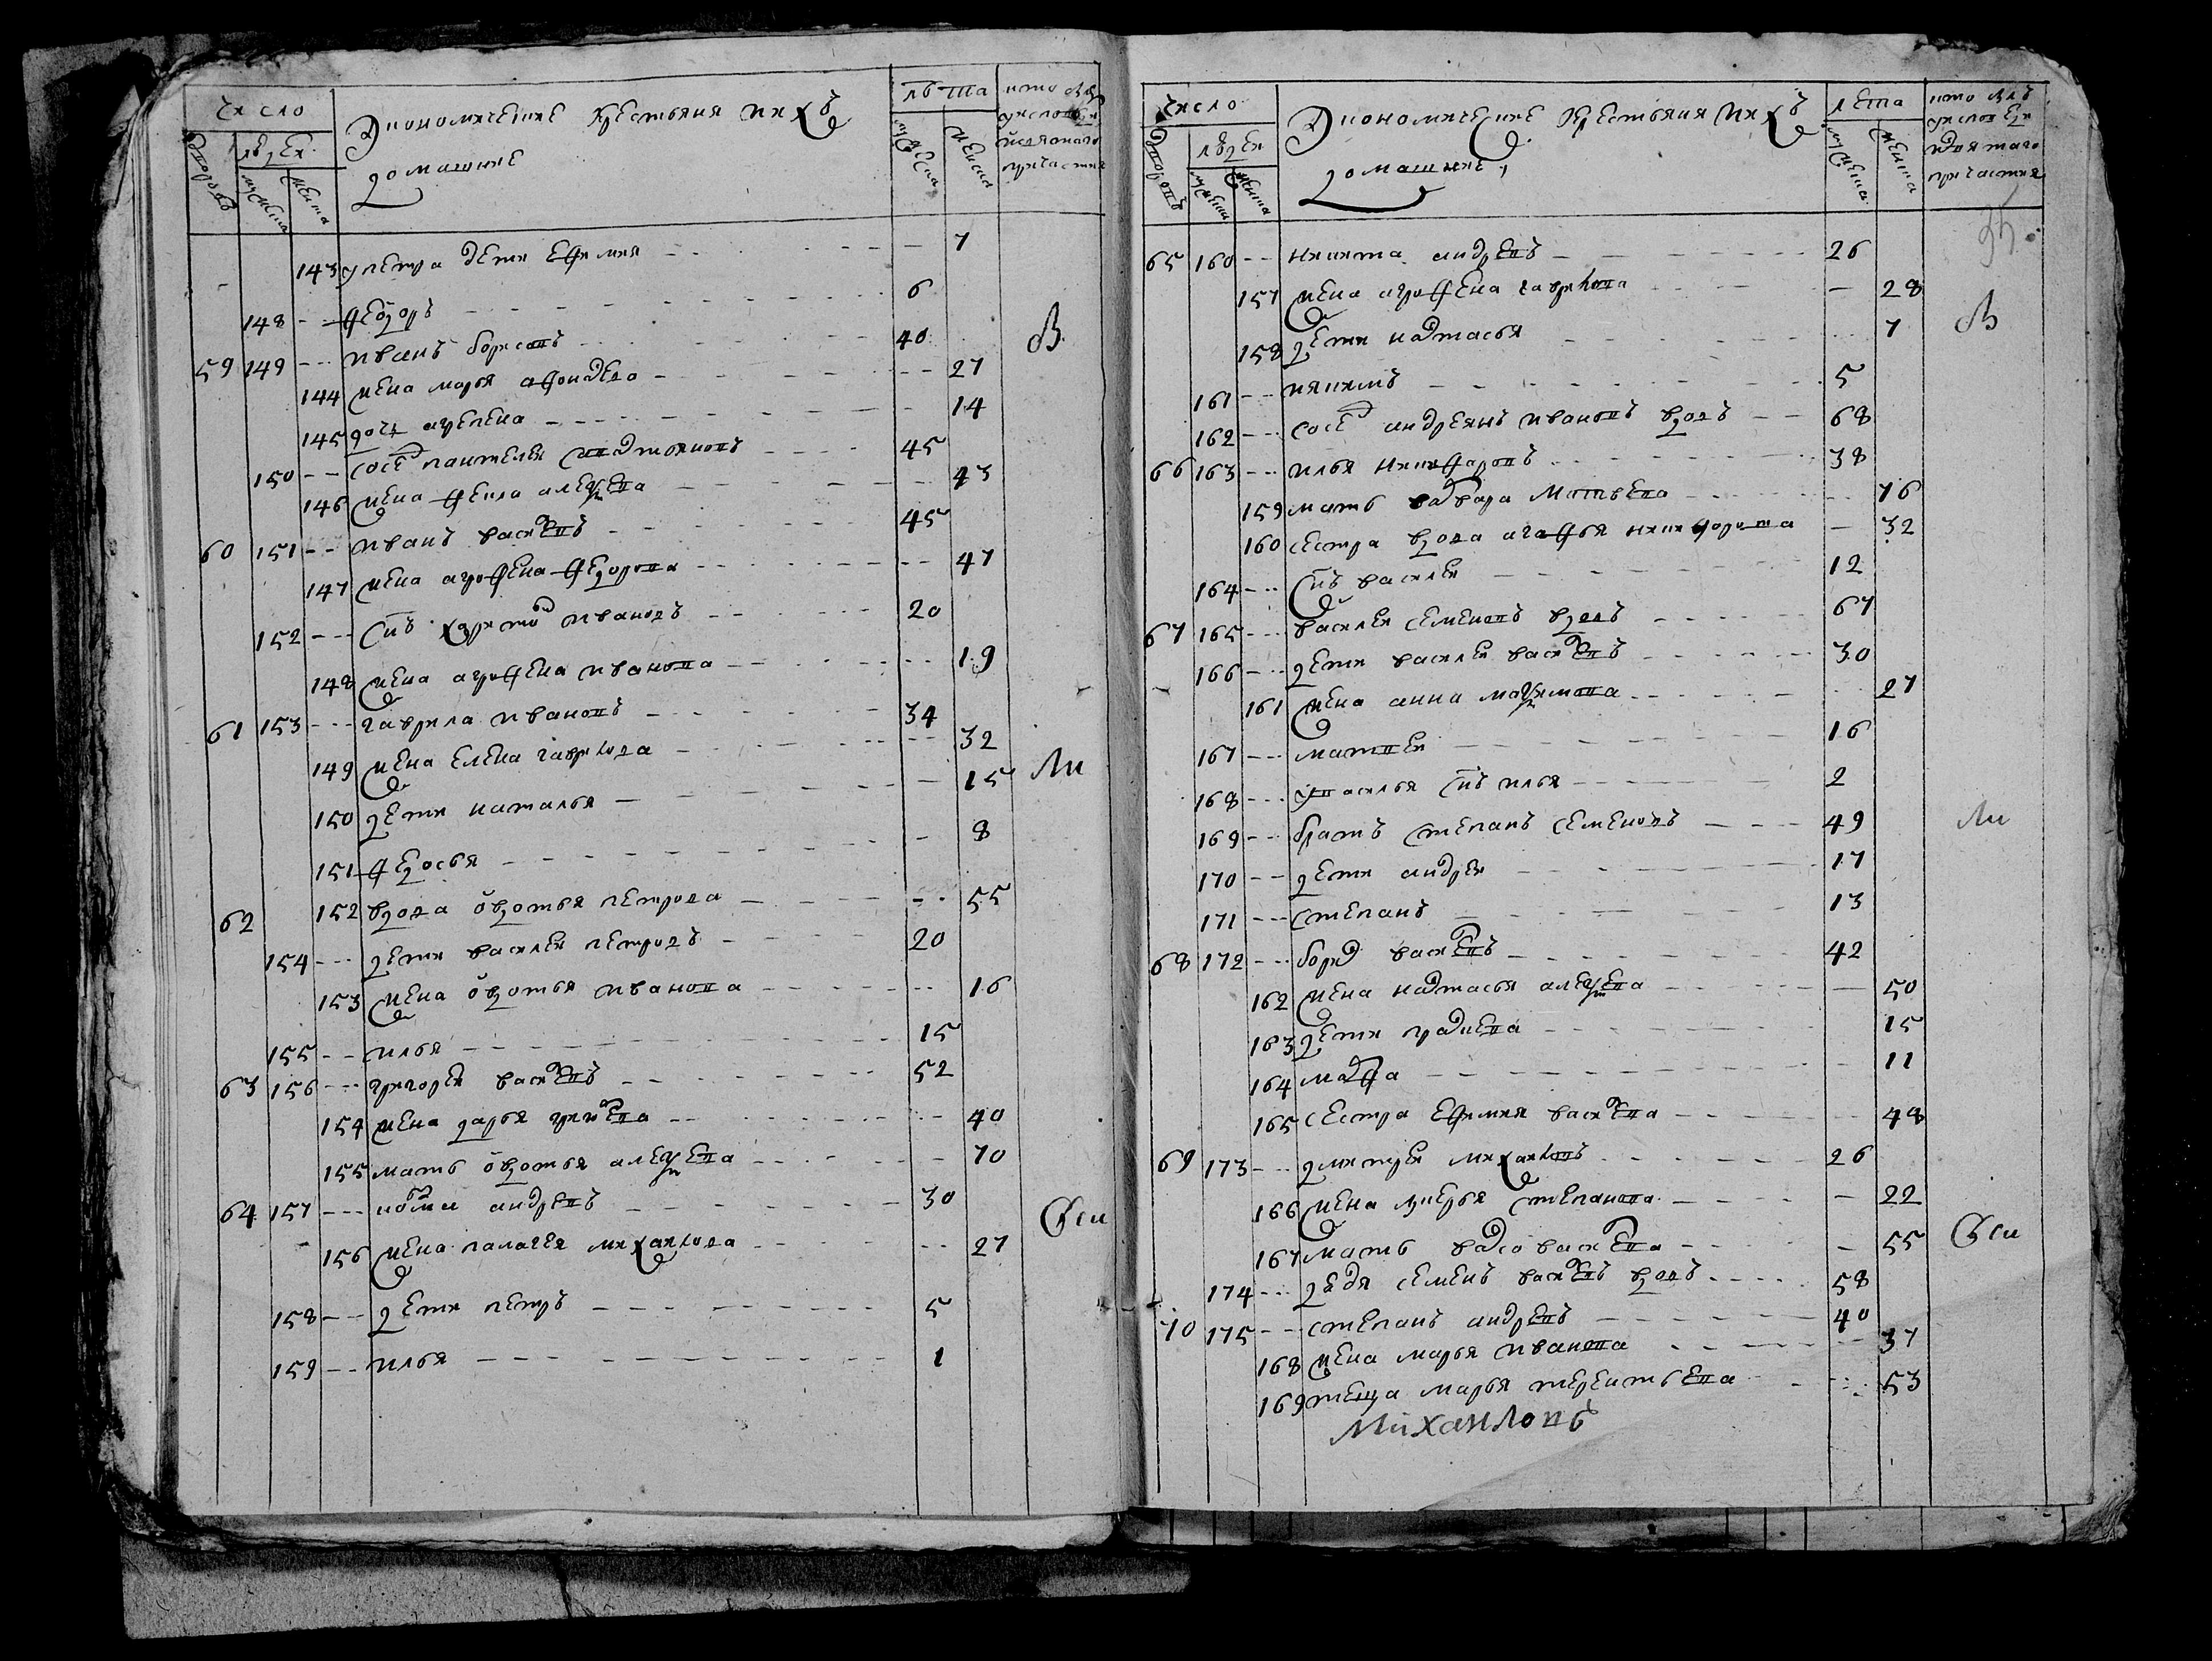 число
людей
Экономические крестьяня и ихъ
домашние
лета
дворовъ
мужеска
женска
мужеска
женска
143 у петра дети ефимия 7
148 федоръ 6
59 149 иванъ борисовъ 40
144 жена марья афонасева 27
145 дочь агрепена 14
150 сосе пантелей савостьяновъ 45
146 жена фекла алексеева 43
60 151 иванъ васильевъ 45
147 жена агрофена федорова 47
152 снъ харитонъ ивановъ 20
148 жена агрофена иванова 19
61 153 гаврила ивановъ 34
149 жена елена гаврилова 32
150 дети наталья 15
151 федосья 8
62 152 вдова овдотья петрова 55
154 дети василеи петровъ 20
153 жена овдотья иванова 16
155 илья 15
63 156 григореи васильевъ 52
154 жена дарья григорьева 40
155 мать овдотья алексеева 70
64 157 козма андреевъ 30
156 жена палагея михаилова 27
158 дети петръ 5
159 илья 1
число
людей
Экономические крестьяня и ихъ
домашние
лета
дворовъ
мужеска
женска
мужеска
женска
65 160 никита андреевъ 26
157 жена агрофена гаврилова 28
158 дети настасья 7
161 никита 5
162 сосе андреянъ ивановъ вдовъ 68
66 163 илья никифоровъ 38
159 мать варвара матвеева 76
160 сестра вдова агафья никифорова 32
164 снъ василеи 12
67 165 василеи семеновъ вдовъ 67
166 дети василеи васильевъ 30
161 жена анна максимова 27
167 матвеи 16
168 у василья снъ илья 2
169 братъ степанъ семеновъ 49
170 дети андреи 17
171 степанъ 13
68 172 борис васильевъ 42
162 жена настасья алексеева 50
163 дети прасковья 15
164 марфа 11
165 сестра ефимия васильева 48
69 173 дмитреи михаиловъ 26
166 жена лукерья степанова 22
167 мать васа васильева 55
174 дядя семенъ васильевъ вдовъ 58
70 175 степанъ андреевъ 40
168 жена марья иванова 37
169 теща марья терентьева 53
Михаиловъ